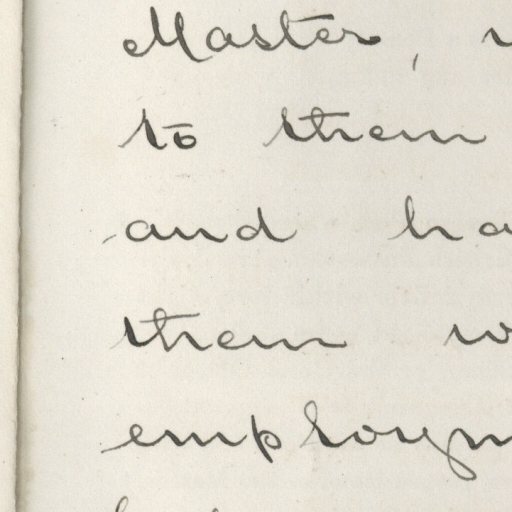 Master,
to them
and ha
them w
employm